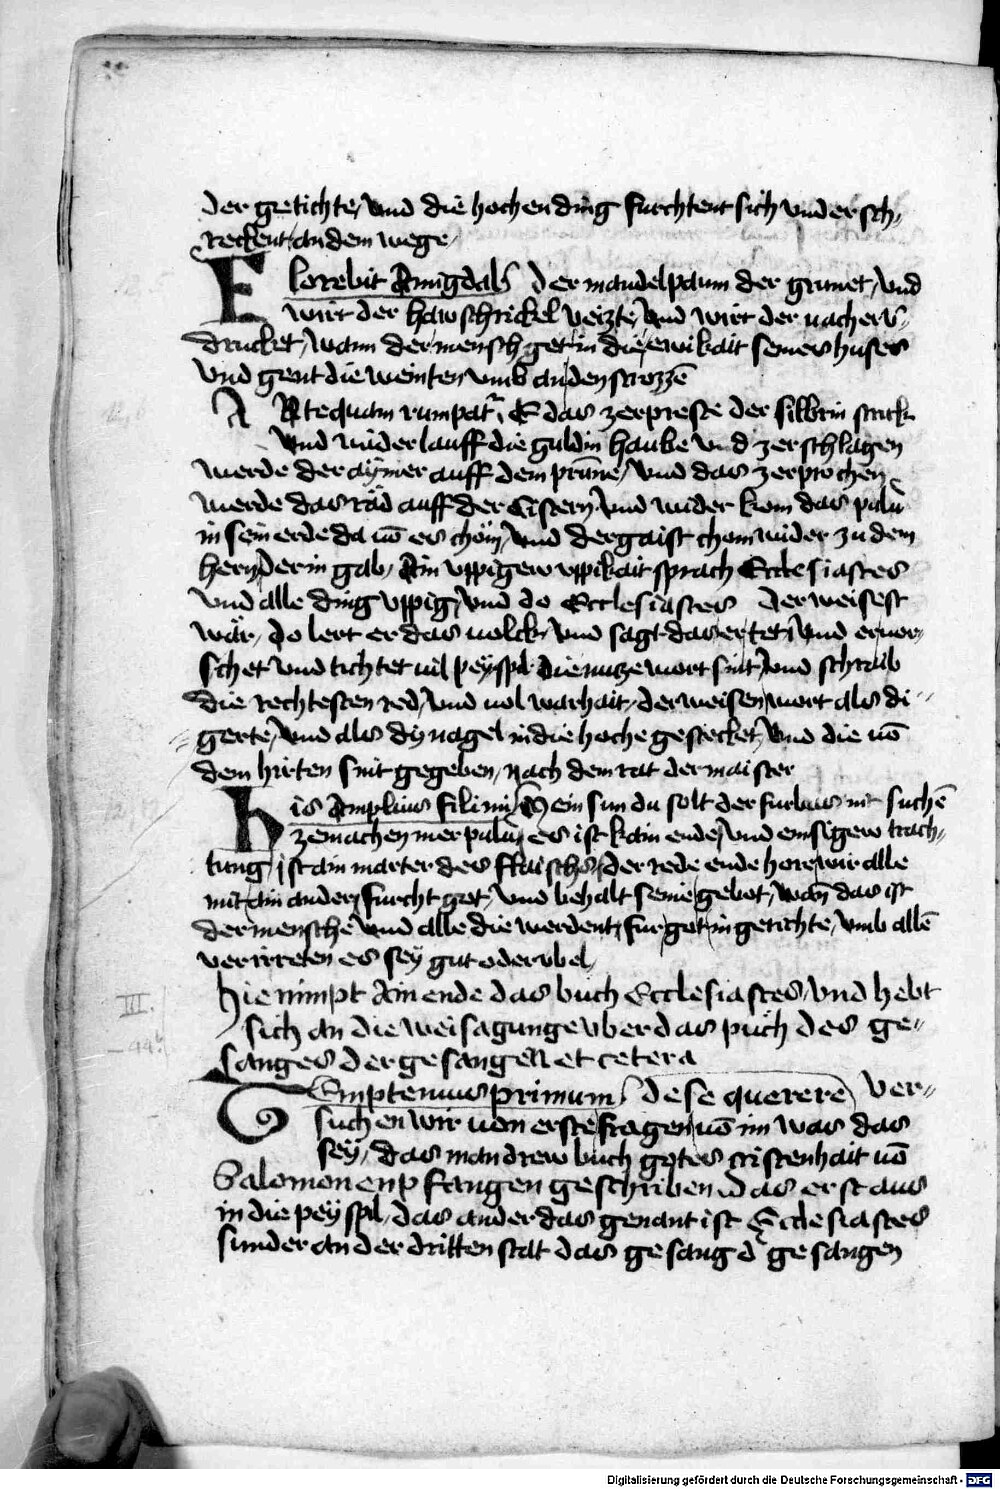 der getichte, vnd die hochen ding furchtent sich vnd ersch,
reckent, an dem wege,
Florebit Amigdals Der mandelpaum der grunet, vnd
wirt der haw schrickel veizte, vnd wirt der nacher v-
drucket, wann der mensch get in die ewikait seines huses
vnd gent die weinten vmb an den strozzē
ANtequam rumpatr E das zerpreste der silbrin strick
vnd wider lauff die guldin haube vnd zerschlagen
werde der aÿmer auff dem prūne, vnd das zerprochen
werde das rad auff der Cistern, vnd wider kom das puluer
in sein erde da uō es chöm, vnd der gaist chom wider zu dem
hern, der in gab, Ain vppigew vppikait sprach Ecclesiastes
vnd alle ding vppig, vnd do Ecclesiastes der weisest
wär, do lert er das uolck, vnd sagt das er tet, vnd eruor,
schet vnd tichtet uil peÿspil die nutze wort sint, vnd schraib
die rechtesten red, vnd uol warhait, der weisen wort als di
gerte, vnd als dy nagel in die hoche gestecket, vnd die uō
dem hirten sint gegeben, nach dem rat der maister
His Amplius fili mi, Mein sun du solt der furbas nit suchē
zemachen mer pulu, es ist kain ende, vnd emsigew trach,
tung, ist ain marter des flaischs, der rede ende hore wir alle
mit ain ander, furcht got, vnd behalt seine gebot, wan das ist
der mensche vnd alle die werdent, fur got in gerichte, vmb allē
verirreten es seÿ gut oder vbel,
hie nimpt Ain ende das buch Ecclesiastes, vnd hebt
sich an die weisagunge vber das püch des ge-
sanges der gesangen et cetera
TEmptemus primum, de se querere, Ver-
suchen wir uon erste fragen, uō im was das
seÿ, das man drew buch gotes cristenhait uō
Salomon enpfangen geschriben, das erst aus
in die peÿspil, das ander das genant ist Ecclesiastes
sunder an der dritten stat das gesang d gesangen
III.
Digitalisierung gefördert durch die Deutsche Forschungsgemeinschaft - DFG